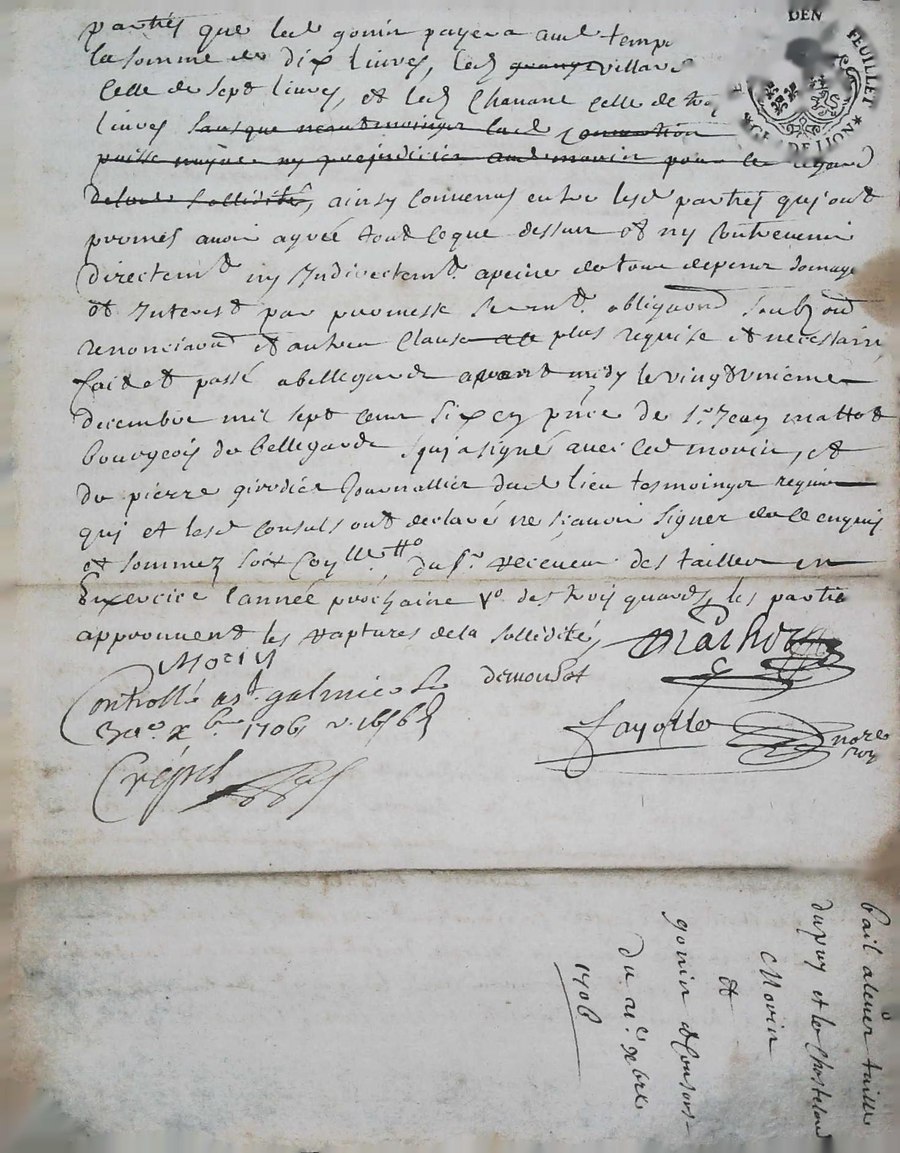 parties que led gonin payera aud temp
la somme de dix livres, led villard
celle de sept livres, et led Chavane celle de
livres sans que neantmoingts lad Convention
puisse nuire ny prejudicier aud morin pour le regard
de lad sollidité, ainsy convenus entre lesd parties qui ont
promis avoir agréé tout ce que dessus et ny contrevenir
directemt ny Indirectemt apeine de tous despens domage
et Interest par promesse sermt obligaond soubz on
renonciaond et autres Clauses plus requise et necessaire
fait et passé a bellegarde avant midy le vingt unieme
decembre mil sept cens six en pnce de sr Jean mathod
bourgeois de bellegarde qui a signé avec led morin, et
de pierre girodier Journallier dud lieu tesmoingts requis
qui et lesd consuls ont declaré ne sçavoir signer de ce enquis
et sommez soit Coll tto du sr Receveur des tailles en
Exercice l'année prochaine vo des trois quards, les partie
approuvent les raptures de la sollidité,
Morin
demontat
Mathod
Controllé a st galmier le
xbre 1706
fayolle
nore
roy
Crépet
DEN
FEUILLET
GE DE LION
bail a lever taille
dupuy et le Chastelard
Morin
et
gonin & Consors
du 21e xbre
1706